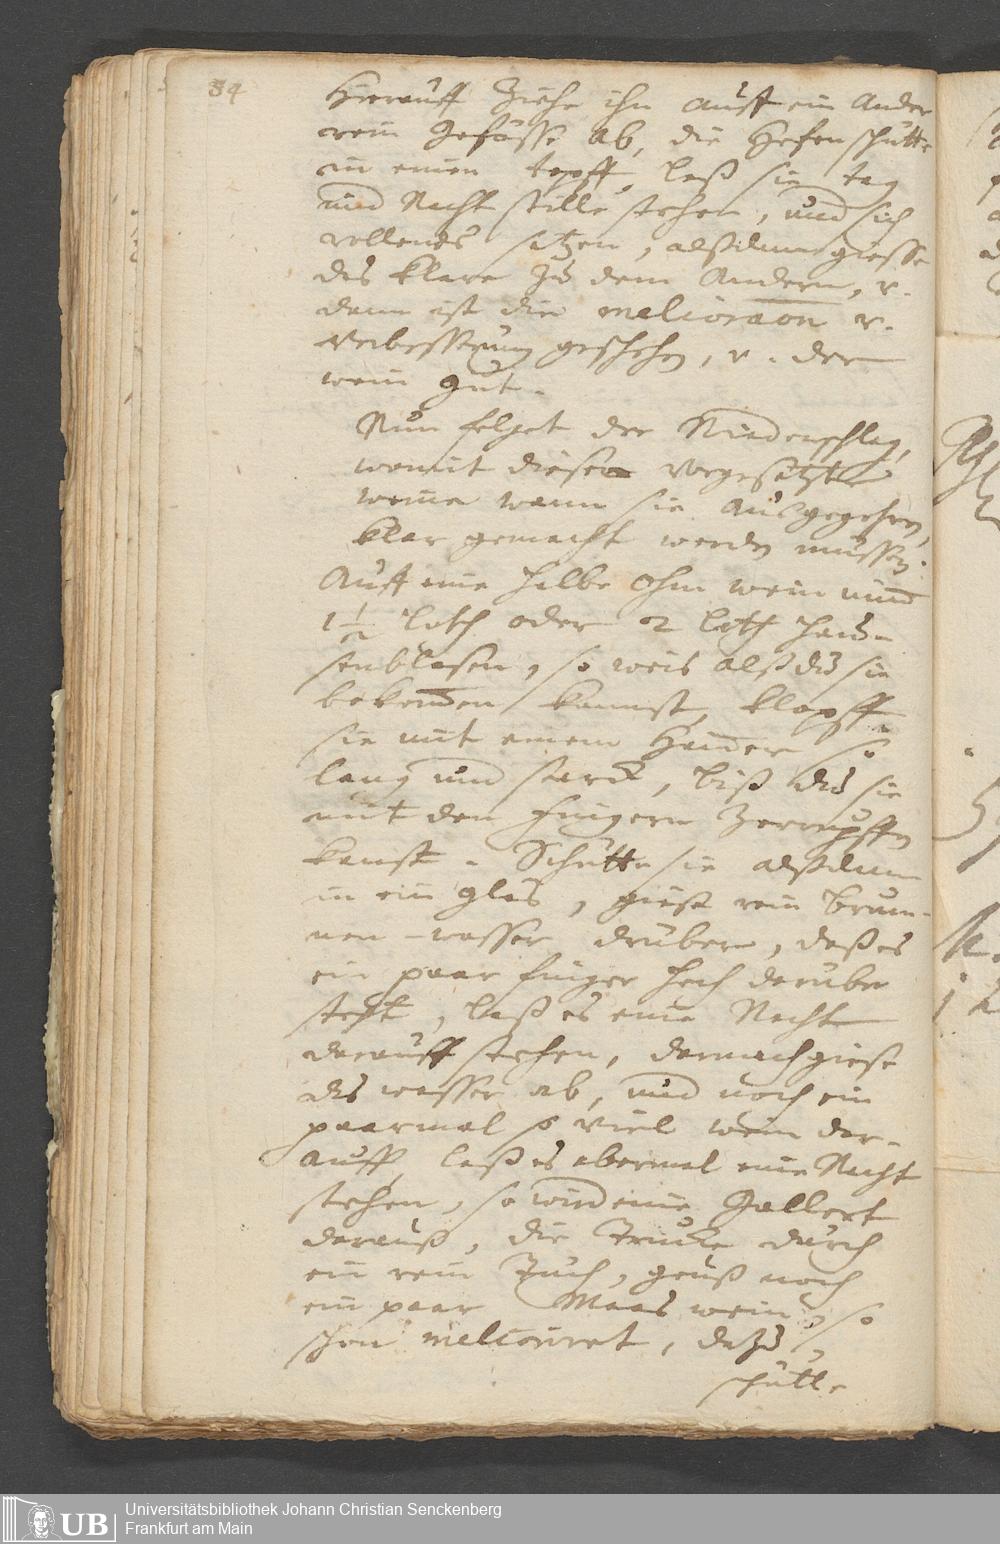 84
Hierauff ziehe ihn auff ein Ander
rein Gefässe ab, die Hefen schütte
in einen topff, laß sie tag
und Nacht stille stehen, und sich
vollends setzen, alßdann giesse
das klare zu dem Andern, v.
dann ist die melioraōn v.
Verbesserung geschehen, v. der
wein gut.
Nun folget der Niederschlag,
womit diese vorgesetzte
weine wann sie ausgegohren,
klar gemacht werden müssen.
Auff eine halbe Ohm wein nimb
1½ loth oder 2 loth hau-
senblasen, so weis alß du sie
bekommen kannst, klopff
sie mit einem Hammer so
lang und starck, biß du sie
mit den fingern zerrupffen
kanst. Schütte sie alßdann
in ein glas, giese rein brun-
nen-wasser drüber, daß es
ein paar finger hoch darüber
steht, laß es eine Nacht
darauff stehen, darnach giese
das wasser ab, und noch ein
paarmal so viel wein dar-
auff, laß es abermal eine Nacht
stehen, so wird eine Gallert
darauß, die drucke durch
ein rein Tuch, geuß noch
ein paar Maas wein, so
schon meliorirt, dazu,
schütte
UB
Universitätsbibliothek Johann Christian Senckenberg
Frankfurt am Main